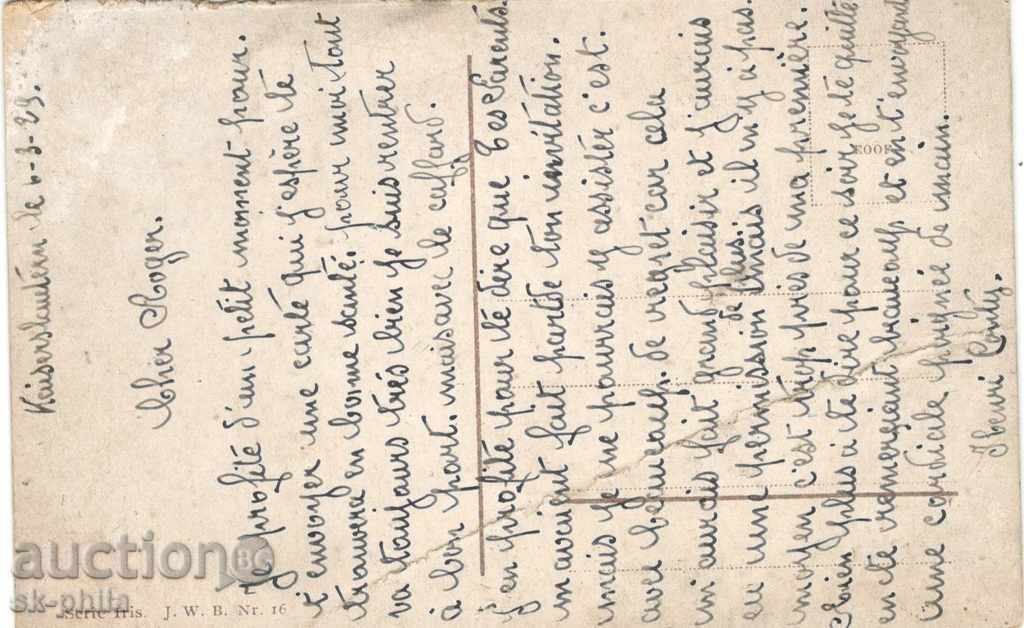 Kaiserslautern le 6-3-29.
Cher Roger.
Je profite d'un petit moment pour.
t'envoyer une carte qui j'espère te
trouvera en bonne santé. pour moi tout
va toujours très bien je suis rentrer
à bon port. mais avec le caffard.
J'en profite pour te dire que tes Parents
m'avaient fait partde ton invitation.
mais je ne pourrais y assister c'est.
avec beaucoup. de regret car cela
m'aurais fait grand plaisir et j'aurais
eu une permission de plus. mais il n'y a pas.
moyen c'est trop près de ma première.
Rien plus a te dire pour ce soir je te quitte
en te remerciant beaucoup et en t'envoyant
une cordiale poignée de main.
Henri
EOOF
Serie Iris. J. W. B. Nr. 16
auction BG
sk-phila